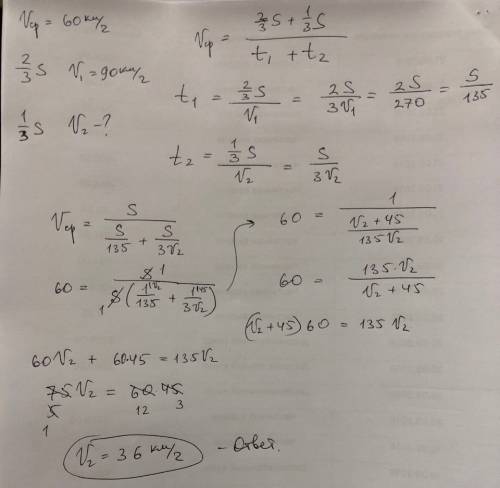 Vср = 60 км/ч
Vср = (2/3 S + 1/3 S) / (t₁ + t₂)
2/3 S V₁ = 90 км/ч
t₁ = (2/3 S) / V₁ = 2S / 3V₁ = 2S / 270 = S / 135
1/3 S V₂ - ?
t₂ = (1/3 S) / V₂ = S / 3V₂
Vср = S / (S/135 + S/3V₂)
60 = S 1 / 1 S (1^V₂/135 + 1^45/3V₂)
60 = 1 / ((V₂ + 45) / 135V₂)
60 = 135·V₂ / (V₂ + 45)
(V₂ + 45) 60 = 135 V₂
60V₂ + 60·45 = 135V₂
75V₂ = 60·45
5 12 3
1
V₂ = 36 км/ч - Ответ.